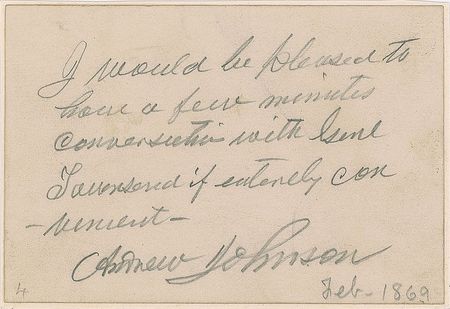 I would be pleased to
have a few minutes
conversation with Genl
Townsend if entirely con
-venient-
Andrew Johnson
4
Feb- 1869